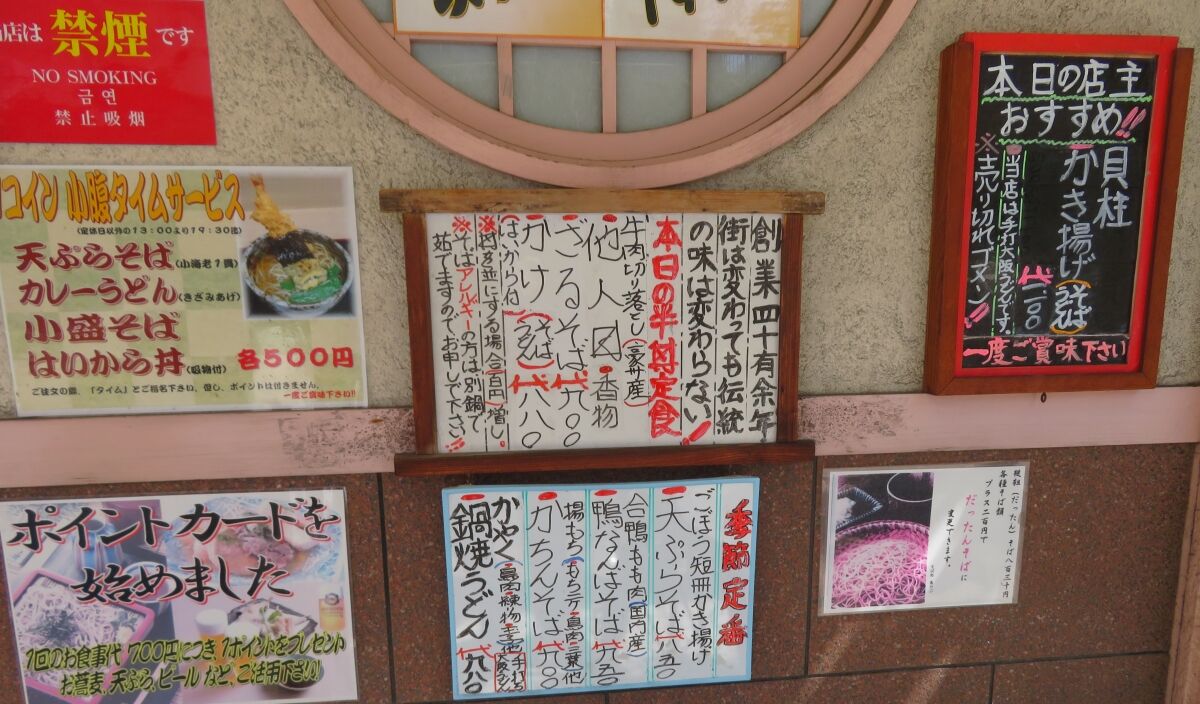 当店は 禁煙 です
NO SMOKING
금연
禁止吸烟
コイン 小腹タイムサービス
(定休日以外の13:00より19:30迄)
天ぷらそば(小海老1貫)
カレーうどん(きざみあげ)
小盛そば
はいから丼(吸物付) 各500円
ご注文の際、「タイム」とご指名下さい、但し、ポイントは付きません。
一度ご賞味下さい!!
ポイントカードを
始めました
1回のお食事代 700円につき 1ポイントをプレゼント
お蕎麦、天ぷら、ビール など、ご活用下さい!
創業四十有余年
街は変わっても伝統
の味は変わらない!
本日の半丼定食
牛肉切り落し(豪州産)
他人丼・香物
ざるそば 代九〇〇
かけ(そば うどん)代八八〇
(はいから付)
※丼を並にする場合百円増し。
※そばアレルギーの方は別鍋で
茹でますのでお申し出下さい!!
季節定番
ごぼう短冊かき揚げ
天ぷらそば 代八五〇
合鴨もも肉(国内産)
鴨なんばそば 代九五〇
揚もち(もち・天・鳥肉・三葉他)
かちんそば 代九〇〇
かやく(鳥肉・練物・玉子他)
鍋焼うどん 代九八〇
本日の店主
おすすめ!!
貝柱
かき揚げ(そば)
代一一〇〇
当店は手打大阪うどんです。
※売り切れゴメン!!
一度ご賞味下さい
韃靼(だったん)そば八百三十円
各種そば類
プラス二百円で
だったんそばに
変更できます。